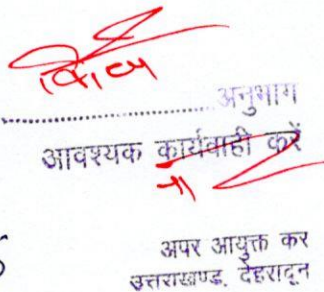 विधि
....................अनुभाग
आवश्यक कार्यवाही करें
अपर आयुक्त कर
उत्तराखण्ड, देहरादून